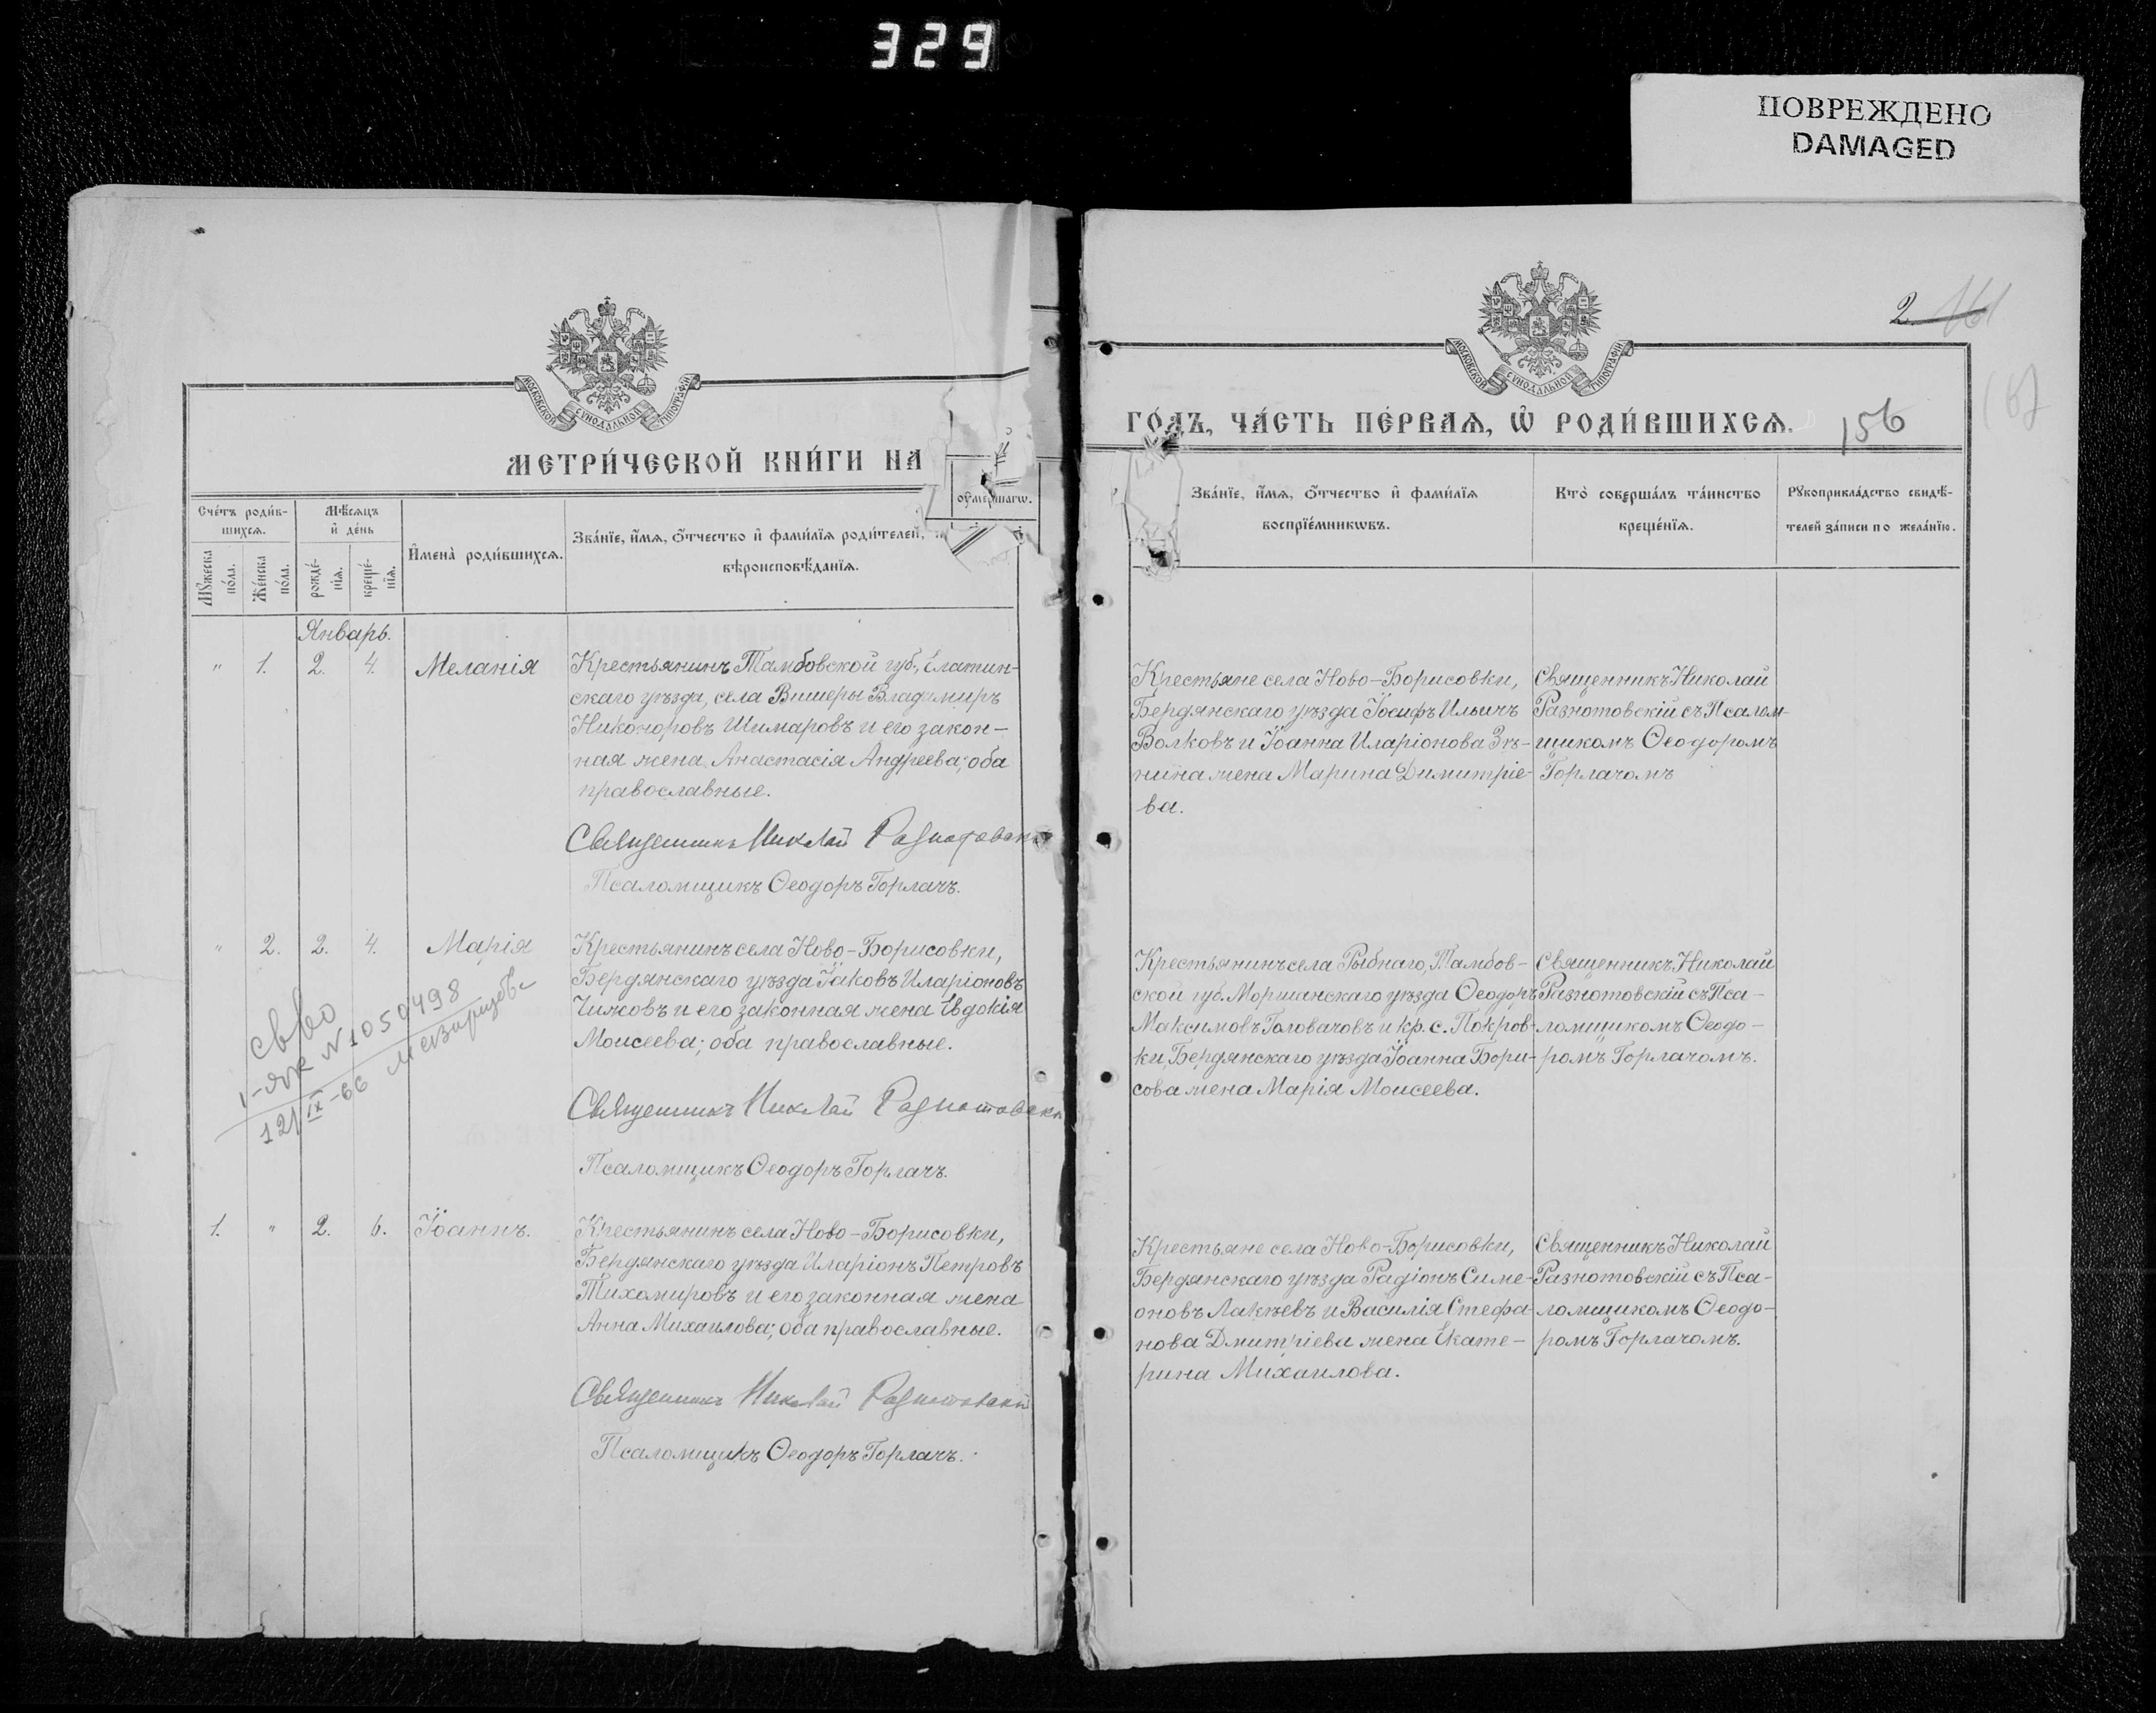 329
ПОВРЕЖДЕНО
DAMAGED
МОСКОВСКОЙ СѴНОДАЛЬНОЙ ТИПОГРАФІИ
МЕТРИ́ЧЕСКОЙ КНИ́ГИ НА
Сче́тъ роди́в-
шихсѧ.
Мѣ́сѧцъ
и҆ де́нь
Мꙋ́жеска
по́ла.
Же́нска
по́ла.
рожде́-
нїѧ.
креще́-
нїѧ.
И҆мена̀ роди́вшихсѧ.
Зва́нїе, и҆́мѧ, ѻ҆́тчество и҆ фами́лїѧ роди́телей,
вѣроисповѣ́данїѧ.
оу҆ме́ршагѡ.
Январь.
" 1. 2. 4. Меланія
Крестьянинъ Тамбовской губ., Елатин-
скаго уѣзда, села Вишеры Владимиръ
Никоноровъ Шимаровъ и его закон-
ная жена Анастасія Андреева; оба
православные.
Священникъ Николай Разнотовскій
Псаломщикъ Ѳеодоръ Горлачъ.
" 2. 2. 4. Марія
Крестьянинъ села Ново-Борисовки,
Бердянскаго уѣзда Іаковъ Иларіоновъ
Чижовъ и его законная жена Евдокія
Моисеева; оба православные.
Священникъ Николай Разнотовскій
Псаломщикъ Ѳеодоръ Горлачъ.
св-во
I-ЯК № 1050498
12/IX-66
1. " 2. 6. Іоаннъ.
Крестьянинъ села Ново-Борисовки,
Бердянскаго уѣзда Иларіонъ Петровъ
Тихомировъ и его законная жена
Анна Михаилова; оба православные.
Священникъ Николай Разнотовскій
Псаломщикъ Ѳеодоръ Горлачъ.
2. 161
МОСКОВСКОЙ СѴНОДАЛЬНОЙ ТИПОГРАФІИ
ГО́ДЪ, ЧА́СТЬ ПЕ́РВАѦ, Ѡ҆ РОДИ́ВШИХСѦ.
156
Зва́нїе, и҆́мѧ, ѻ҆́тчество и҆ фами́лїѧ
воспрїе́мникѡвъ.
Кто̀ соверша́лъ та́инство
креще́нїѧ.
Рꙋкоприкла́дство свидѣ́-
телей за́писи по жела́нїю.
Крестьяне села Ново-Борисовки,
Бердянскаго уѣзда Іосифъ Ильичъ
Волковъ и Іоанна Иларіонова Зѣ-
нина жена Марина Димитріе-
ва.
Священникъ Николай
Разнотовскій съ Псалом-
щикомъ Ѳеодоромъ
Горлачомъ
Крестьянинъ села Рыбнаго, Тамбов-
ской губ. Моршанскаго уѣзда Ѳеодоръ
Максимовъ Головачовъ и кр. с. Покров-
ки, Бердянскаго уѣзда Іоанна Бори-
сова жена Марія Моисеева.
Священникъ Николай
Разнотовскій съ Пса-
ломщикомъ Ѳеодо-
ромъ Горлачомъ.
Крестьяне села Ново-Борисовки,
Бердянскаго уѣзда Радіонъ Симе-
оновъ Лакѣевъ и Василія Стефа-
нова Дмитріева жена Екате-
рина Михаилова.
Священникъ Николай
Разнотовскій съ Пса-
ломщикомъ Ѳеодо-
ромъ Горлачомъ.